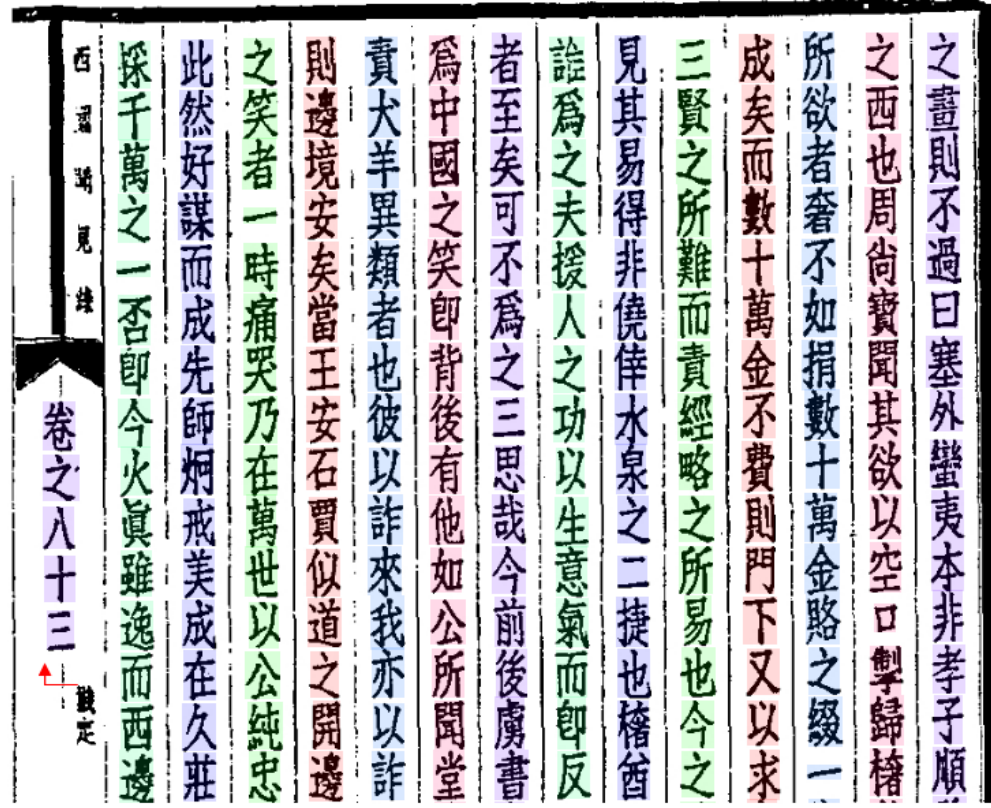 之畫則不過曰塞外蠻夷本非孝子順
之西也周尙寶聞其欲以空口掣歸㯖
所欲者奢不如捐數十萬金賂之綴一
成矣而數十萬金不費則門下又以求
三賢之所難而責經略之所易也今之
見其易得非僥倖水泉之二捷也㯖酋
誰爲之夫援人之功以生意氣而卽反
者至矣可不爲之三思哉今前後虜書
爲中國之笑卽背後有他如公所聞堂
責犬羊異類者也彼以詐來我亦以詐
則邊境安矣當王安石賈似道之開邊
之笑者一時痛哭乃在萬世以公純忠
此然好謀而成先師炯戒美成在久莊
採千萬之一否卽今火眞雖逸而西邊
西 聞見錄
卷之八十三